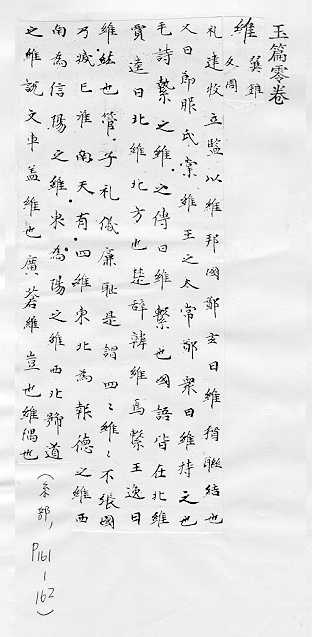 玉篇零卷
維 翼錐反周
礼建牧立監以維邦國鄭玄曰維猶聯結也
又曰節服氏掌維王之太常鄭衆曰維持之也
毛詩縶之維之傳曰維繫也國語皆在北維
賈逵曰北維北方也楚辭斡維焉繫王逸曰
維紘也管子礼儀廉恥是謂四〻維〻不張國
乃滅已淮南天有四維東北為報德之維西
南為信陽之維東為陽之維西北蹄道
之維說文車盖維也廣蒼維豈也維隅也
(糸部, P161-162)